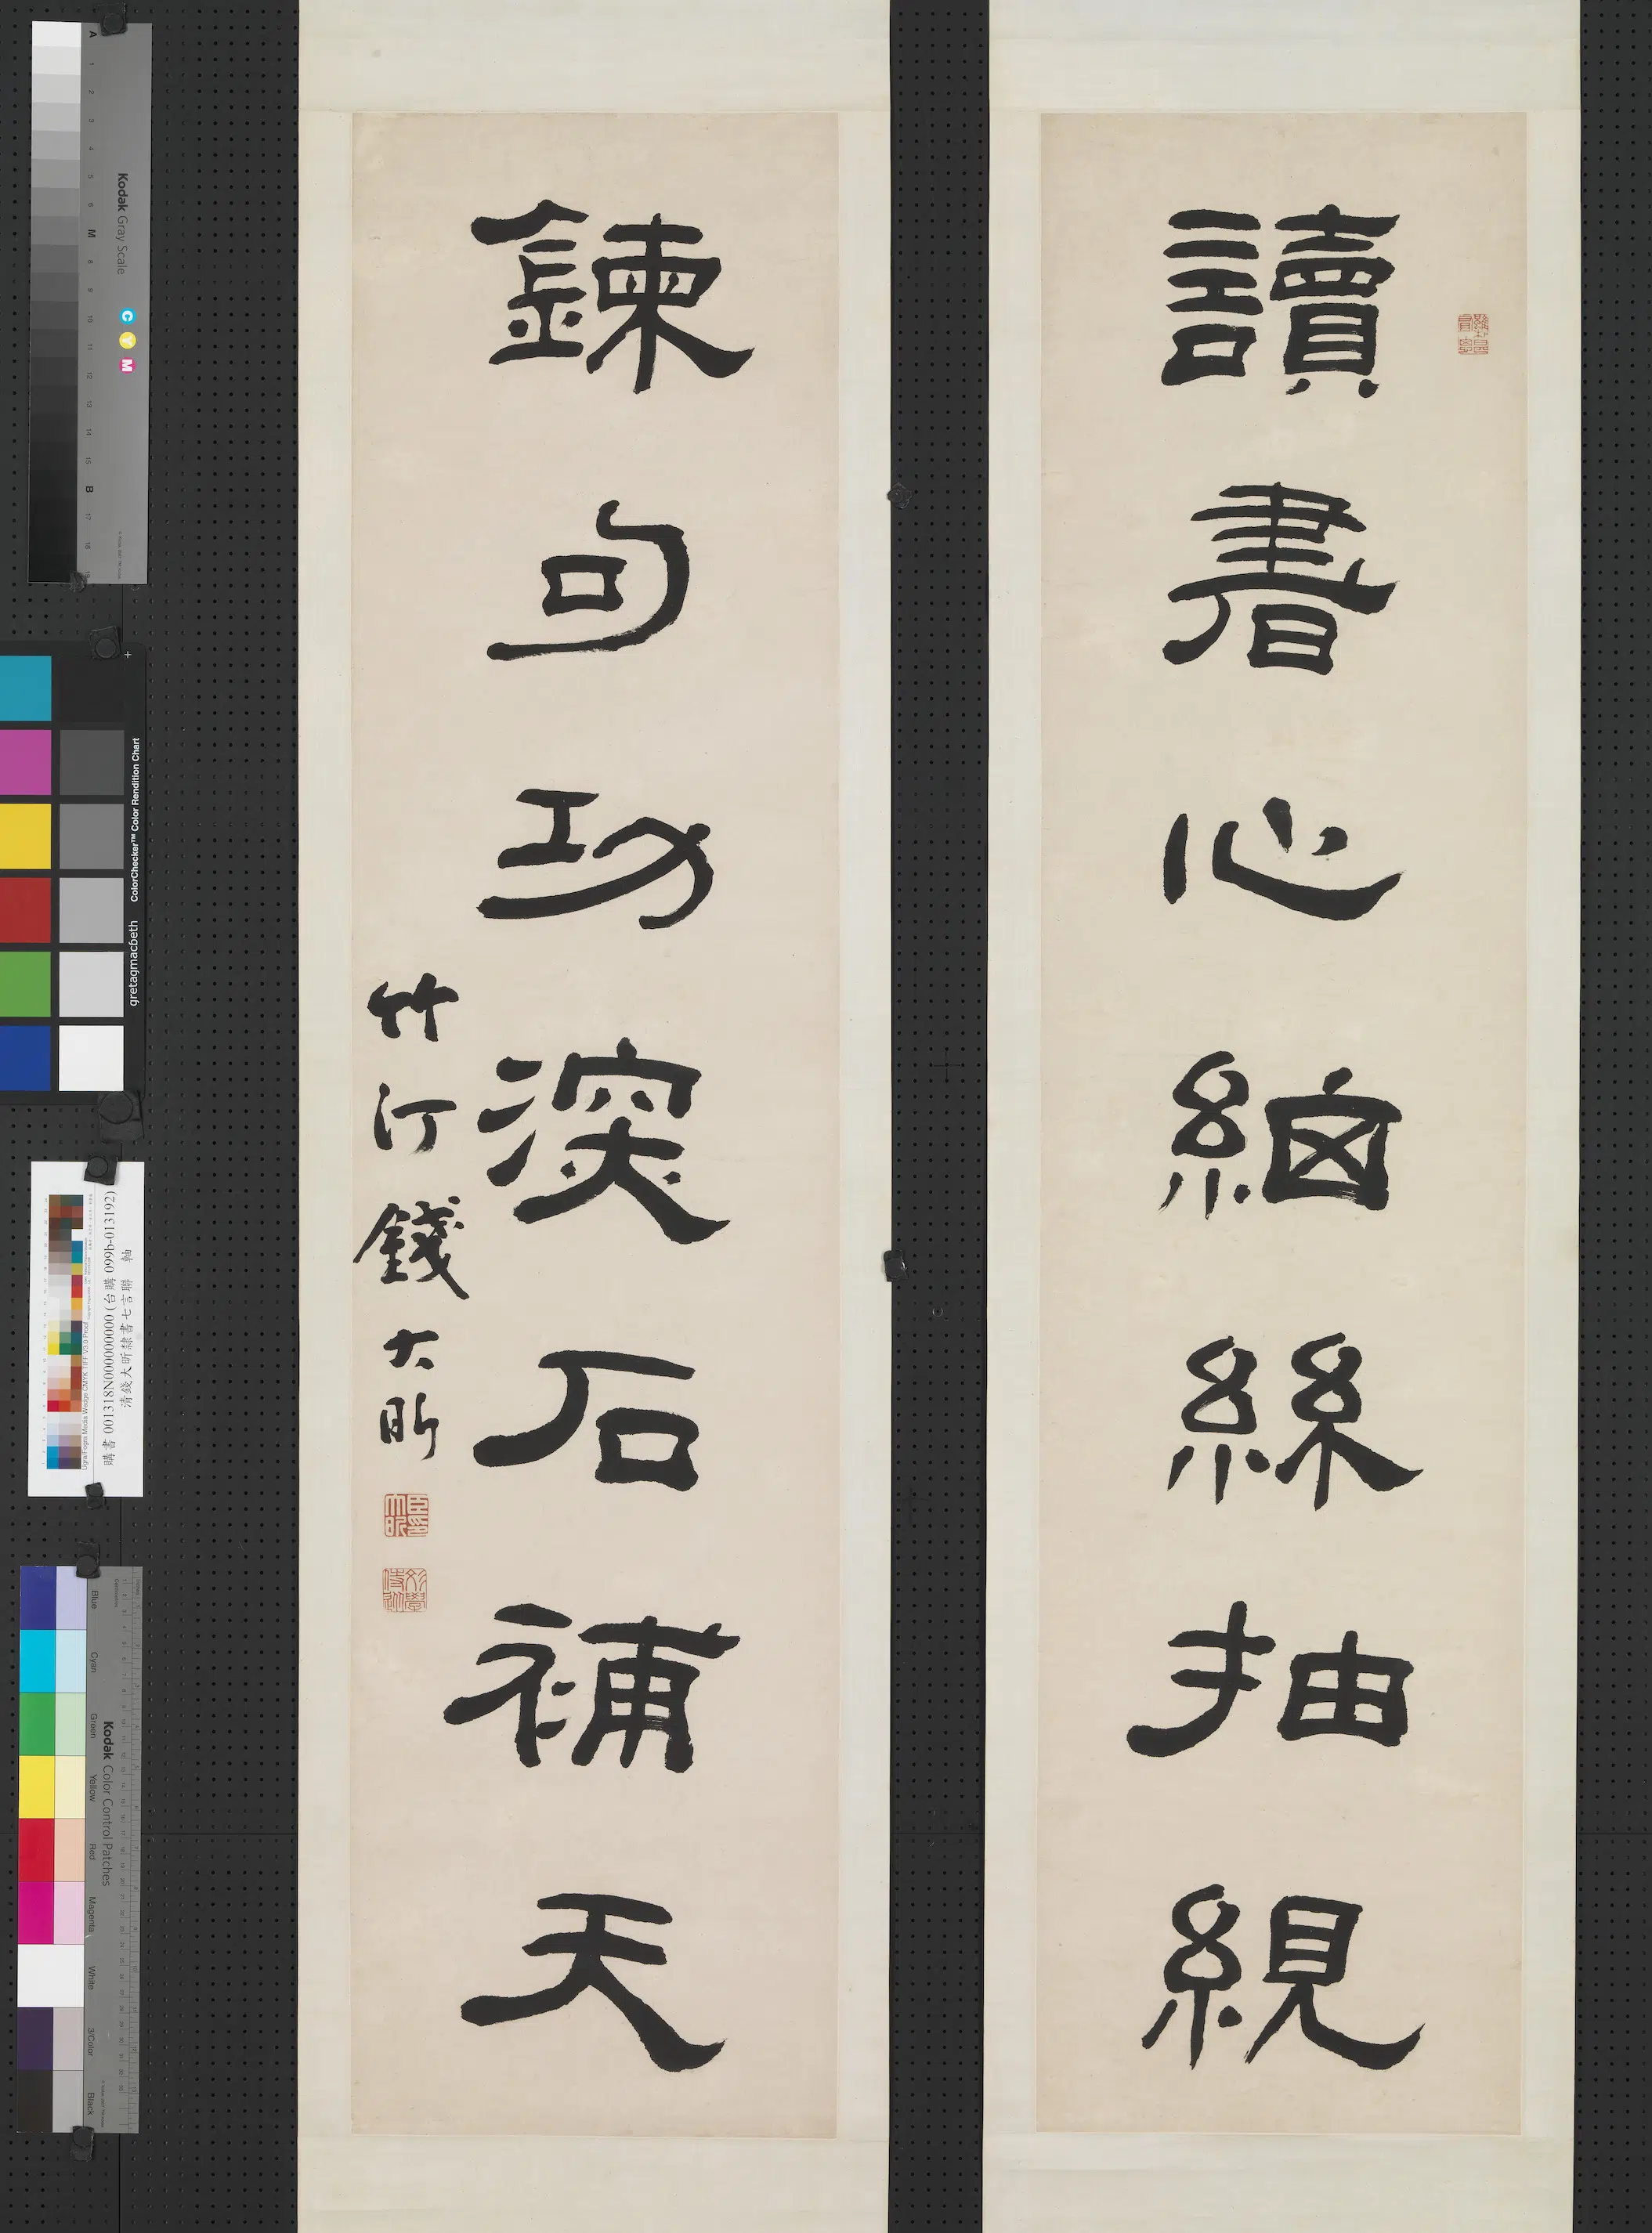 讀書心細絲抽繭
鍊句功深石補天
竹汀錢大昕
臣大昕印
Kodak Gray Scale
C Y M
A 1 2 3 4 5 6 M 8 9 10 11 12 13 14 15 B 17 18 19
ColorChecker™ Color Rendition Chart
gretagmacbeth
購書 001318N000000000(台購 099b-013192)
清錢大昕隸書七言聯 軸
Kodak Color Control Patches
Blue Cyan Green Yellow Red Magenta White 3/Color Black